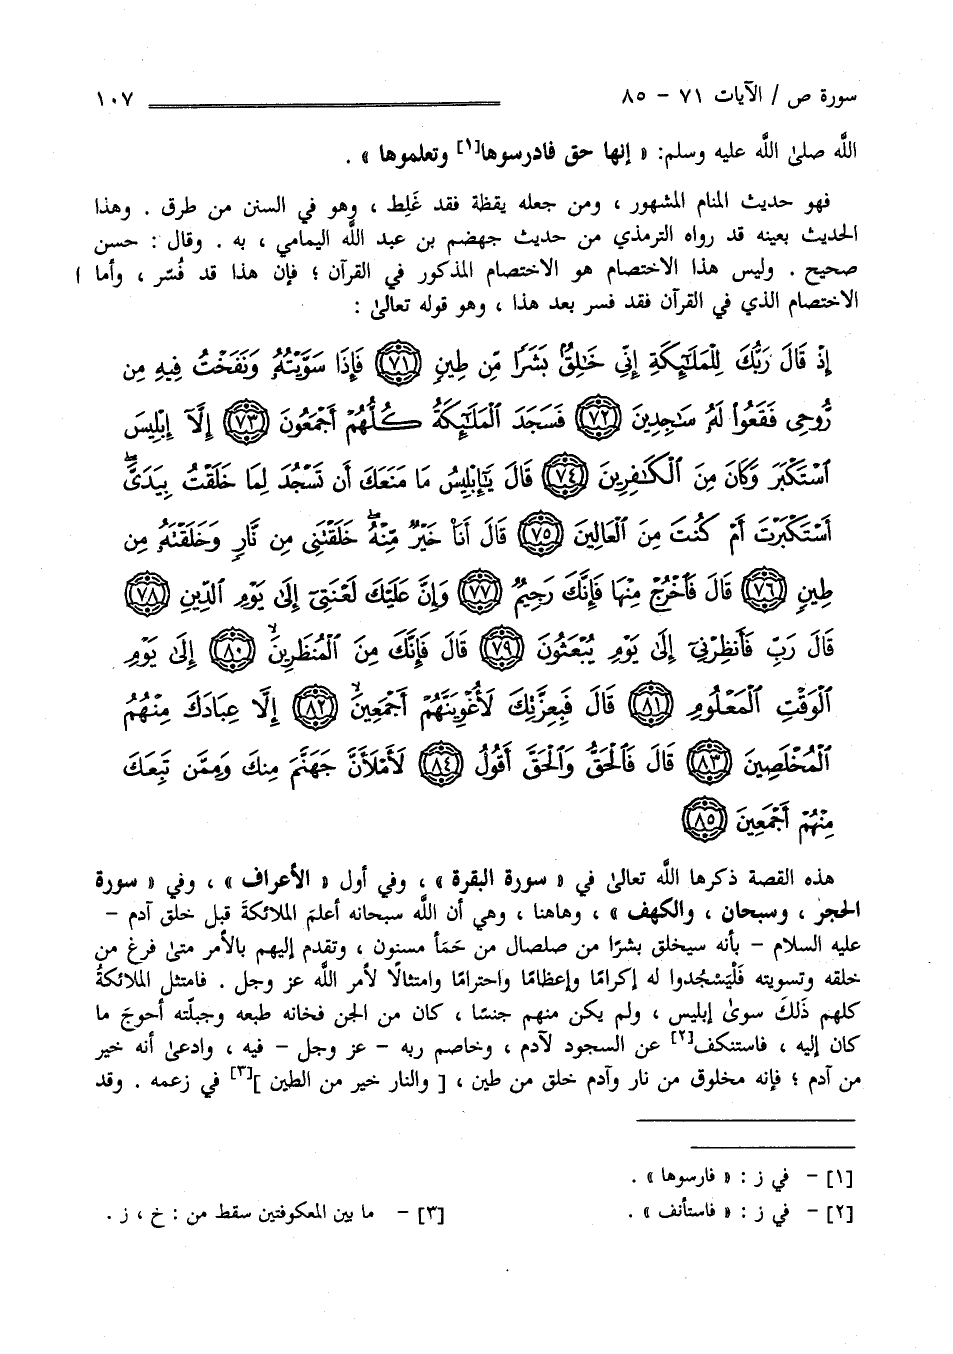 سورة ص / الآيات ٧١ - ٨٥ ١٠٧
اللَّه صلىٰ اللَّه عليه وسلم: « إنها حق فادرسوها[١] وتعلموها » .
فهو حديث المنام المشهور ، ومن جعله يقظة فقد غَلِط ، وهو في السنن من طرق . وهذا
الحديث بعينه قد رواه الترمذي من حديث جهضم بن عبد اللَّه اليمامي ، به . وقال : حسن
صحيح . وليس هذا الاختصام هو الاختصام المذكور في القرآن ؛ فإن هذا قد فُسّر ، وأما ا
الاختصام الذي في القرآن فقد فسر بعد هذا ، وهو قوله تعالىٰ :
إِذْ قَالَ رَبُّكَ لِلْمَلَٰٓئِكَةِ إِنِّى خَٰلِقٌۢ بَشَرًا مِّن طِينٍ ٧١ فَإِذَا سَوَّيْتُهُۥ وَنَفَخْتُ فِيهِ مِن
رُّوحِى فَقَعُوا۟ لَهُۥ سَٰجِدِينَ ٧٢ فَسَجَدَ ٱلْمَلَٰٓئِكَةُ كُلُّهُمْ أَجْمَعُونَ ٧٣ إِلَّآ إِبْلِيسَ
ٱسْتَكْبَرَ وَكَانَ مِنَ ٱلْكَٰفِرِينَ ٧٤ قَالَ يَٰٓإِبْلِيسُ مَا مَنَعَكَ أَن تَسْجُدَ لِمَا خَلَقْتُ بِيَدَىَّۖ
أَسْتَكْبَرْتَ أَمْ كُنتَ مِنَ ٱلْعَالِينَ ٧٥ قَالَ أَنَا۠ خَيْرٌ مِّنْهُۖ خَلَقْتَنِى مِن نَّارٍ وَخَلَقْتَهُۥ مِن
طِينٍ ٧٦ قَالَ فَٱخْرُجْ مِنْهَا فَإِنَّكَ رَجِيمٌ ٧٧ وَإِنَّ عَلَيْكَ لَعْنَتِىٓ إِلَىٰ يَوْمِ ٱلدِّينِ ٧٨
قَالَ رَبِّ فَأَنظِرْنِىٓ إِلَىٰ يَوْمِ يُبْعَثُونَ ٧٩ قَالَ فَإِنَّكَ مِنَ ٱلْمُنظَرِينَۙ ٨٠ إِلَىٰ يَوْمِ
ٱلْوَقْتِ ٱلْمَعْلُومِ ٨١ قَالَ فَبِعِزَّتِكَ لَأُغْوِيَنَّهُمْ أَجْمَعِينَۙ ٨٢ إِلَّا عِبَادَكَ مِنْهُمُ
ٱلْمُخْلَصِينَ ٨٣ قَالَ فَٱلْحَقُّ وَٱلْحَقَّ أَقُولُ ٨٤ لَأَمْلَأَنَّ جَهَنَّمَ مِنكَ وَمِمَّن تَبِعَكَ
مِنْهُمْ أَجْمَعِينَ ٨٥
هذه القصة ذكرها اللَّه تعالىٰ في « سورة البقرة » ، وفي أول « الأعراف » ، وفي « سورة
الحجر ، وسبحان ، والكهف » ، وهاهنا ، وهي أن اللَّه سبحانه أعلمَ الملائكةَ قبل خلق آدم -
عليه السلام - بأنه سيخلق بشرًا من صلصال من حَمَأ مسنون ، وتقدم إليهم بالأمر متىٰ فرغ من
خلقه وتسويته فَلْيَسْجُدوا له إكرامًا وإعظامًا واحترامًا وامتثالًا لأمر اللَّه عز وجل . فامتثل الملائكةُ
كلهم ذَلكَ سوىٰ إبليس ، ولم يكن منهم جنسًا ، كان من الجن فخانه طبعه وجبلّته أحوجَ ما
كان إليه ، فاستنكف[٢] عن السجود لآدم ، وخاصم ربه - عز وجل - فيه ، وادعىٰ أنه خير
من آدم ؛ فإنه مخلوق من نار وآدم خلق من طين ، [ والنار خير من الطين ][٣] في زعمه . وقد
[١] - في ز : « فارسوها » .
[٢] - في ز : « فاستأنف » .
[٣] - ما بين المعكوفتين سقط من : خ ، ز .